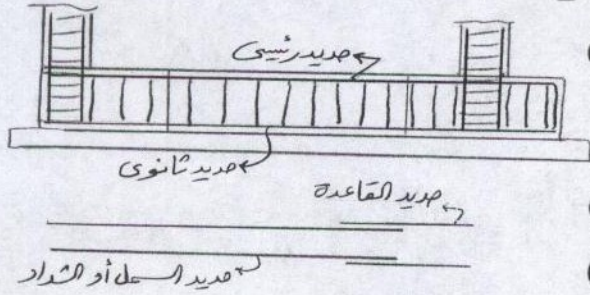 حديد رئيسى
حديد ثانوى
حديد القاعدة
حديد السمل أو الشداد